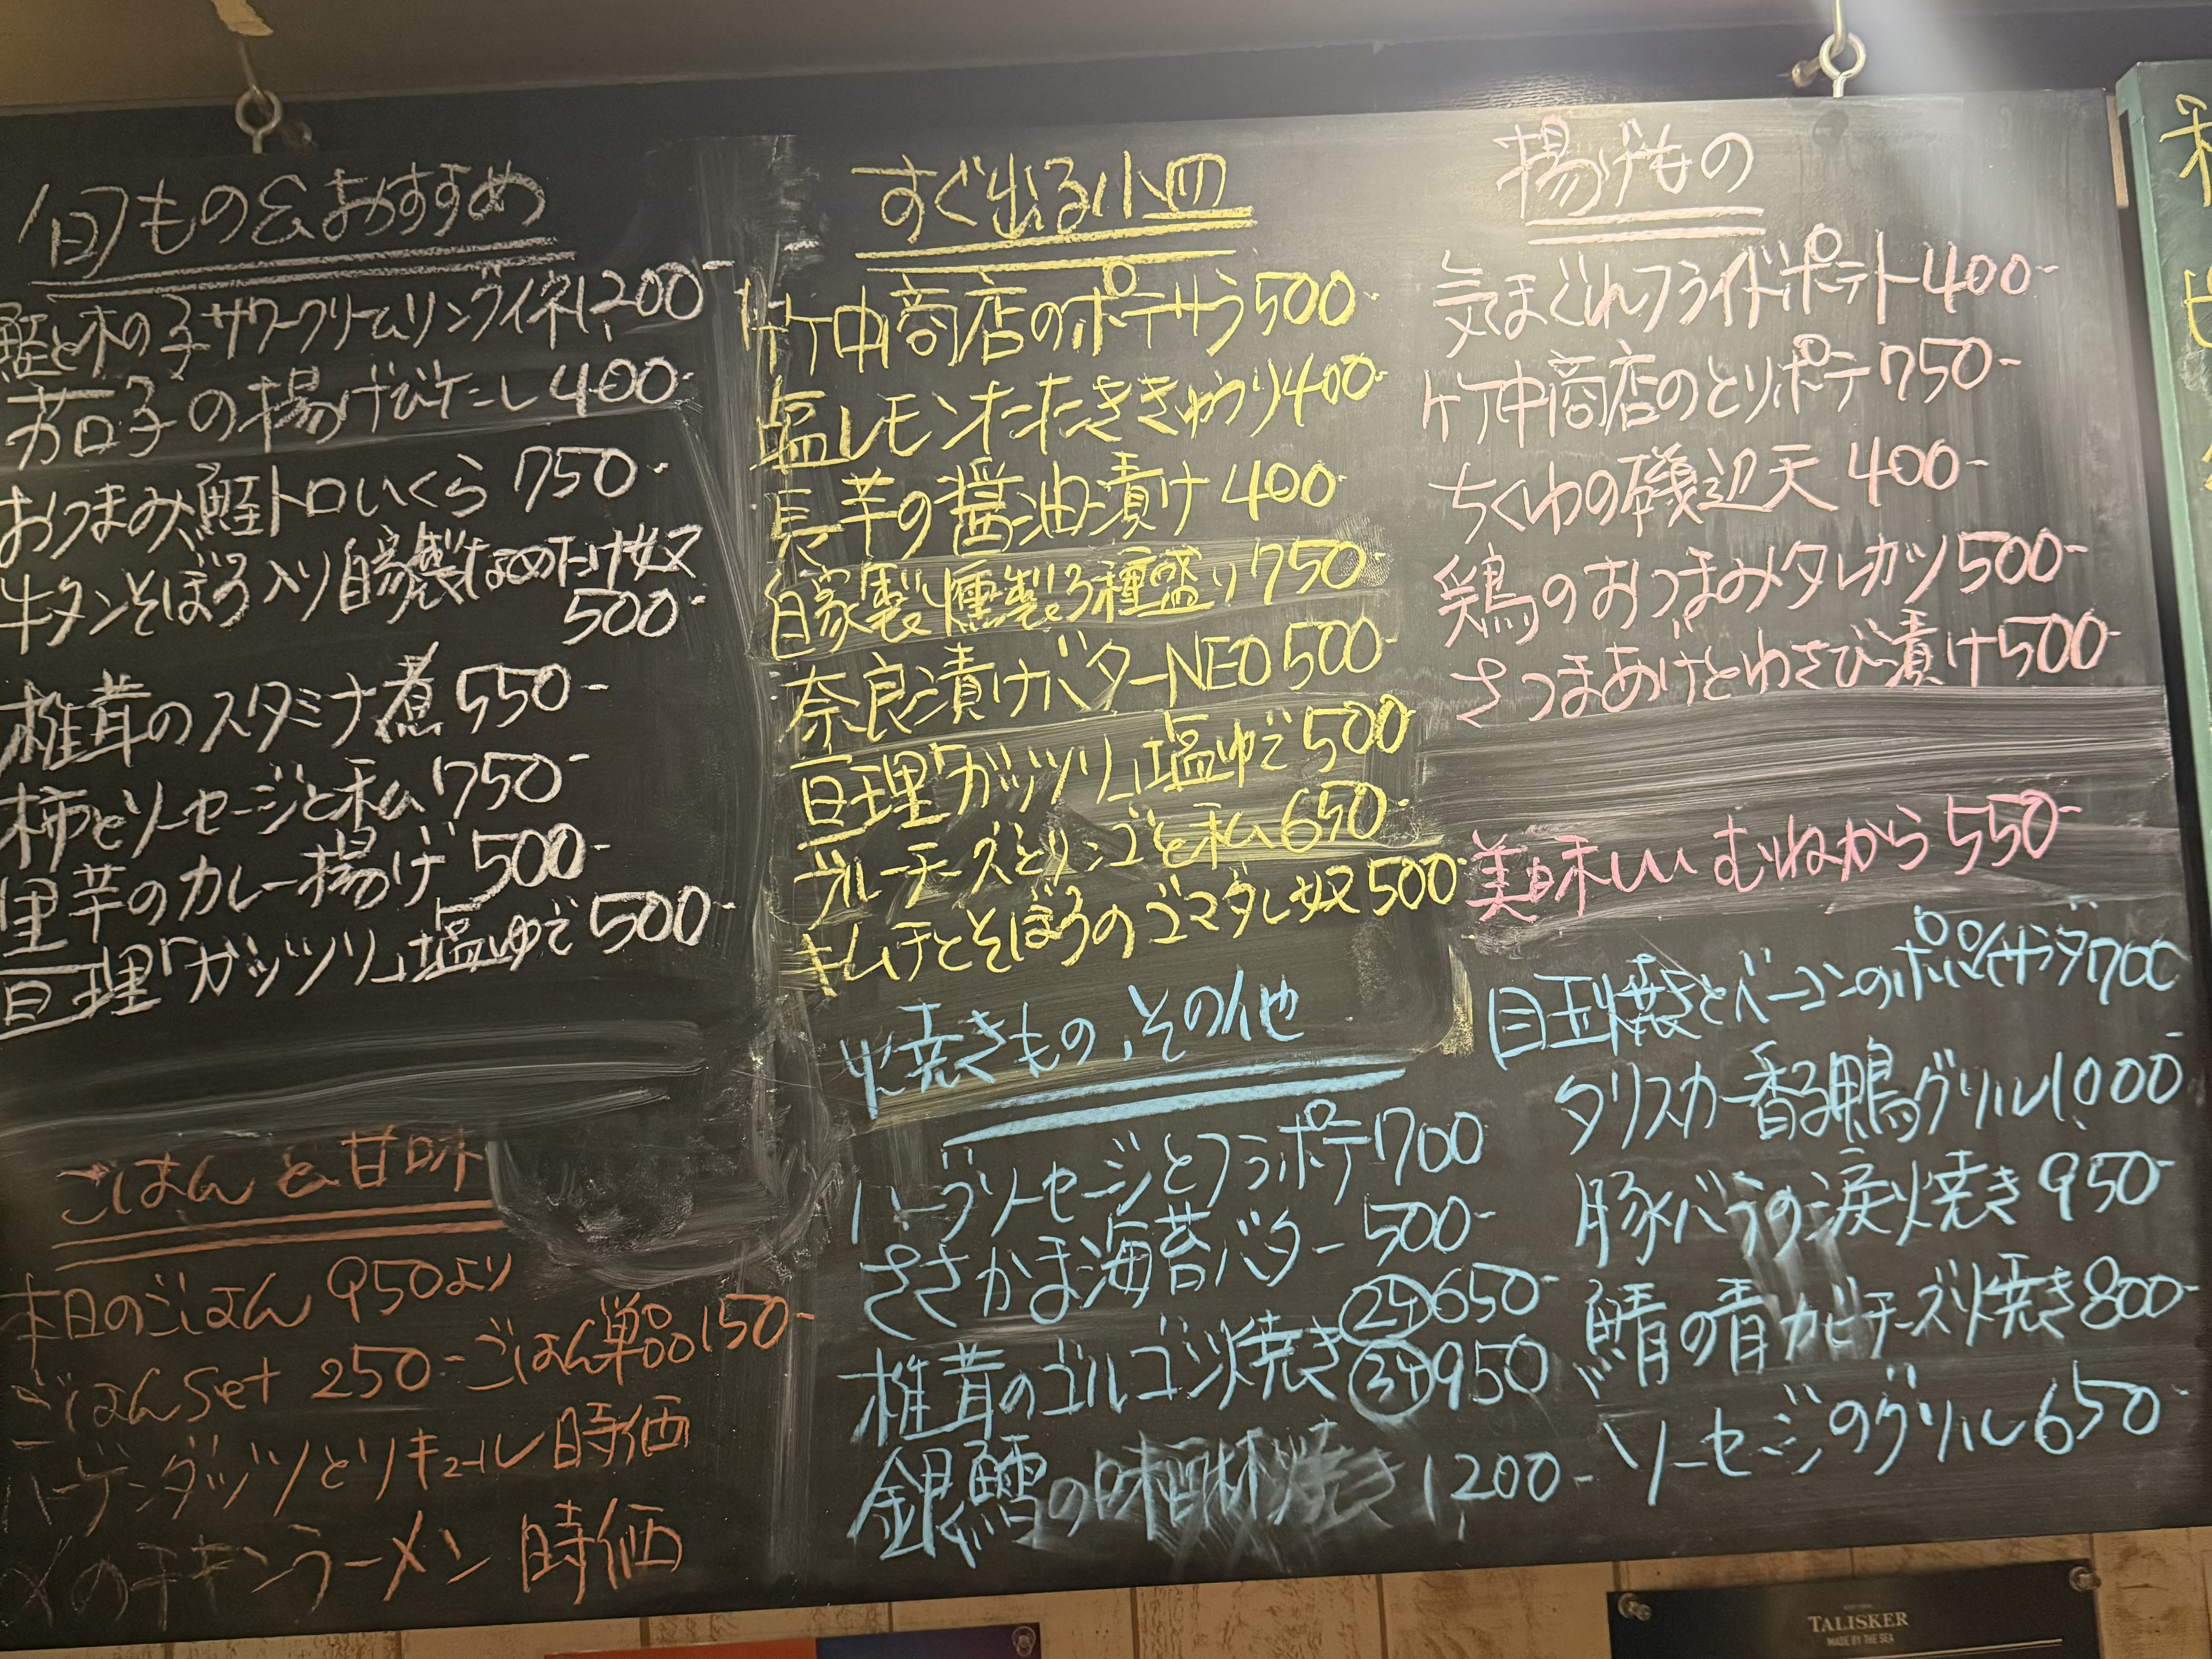 旬もの&おすすめ
鮭と木の子サワークリームリングイネ1200-
茄子の揚げびたし400-
おつまみ鮭トロいくら 750-
牛タンそぼろ入り自家製なめたけ奴
500-
椎茸のスタミナ煮 550-
柿とソーセージと私 750-
里芋のカレー揚げ 500-
亘理「ガッツリ」塩ゆで 500-
ごはんと甘味
本日のごはん 950より
ごはんset 250- ごはん単品150-
ハーゲンダッツとリキュール 時価
〆のチキンラーメン 時価
すぐ出る小皿
竹中商店のポテサラ500-
塩レモンたたききゅうり400-
長芋の醤油漬け 400-
自家製燻製3種盛り750-
奈良漬けバターNEO500-
亘理「ガッツリ」塩ゆで500-
ブルーチーズとリンゴと私650-
キムチとそぼろのゴマダレ奴500-
焼きもの、その他
ハーブソーセージとフラポテ700
ささかま海苔バター 500-
椎茸のゴルゴンゾ焼き ②650-
③950
銀鱈の味醂焼き 1200-
揚げもの
気まぐれフライドポテト400-
竹中商店のとりポテ750-
ちくわの磯辺天 400-
鶏のおつまみタレカツ500-
さつまあげとわさび漬け500-
美味しいむねから 550-
目玉焼きとベーコンのポパイサラダ700
タリスカー香る鴨グリル1000-
豚バラの涙焼き 950-
鯖の青カビチーズ焼き800-
ソーセージのグリル650-
TALISKER
MADE BY THE SEA